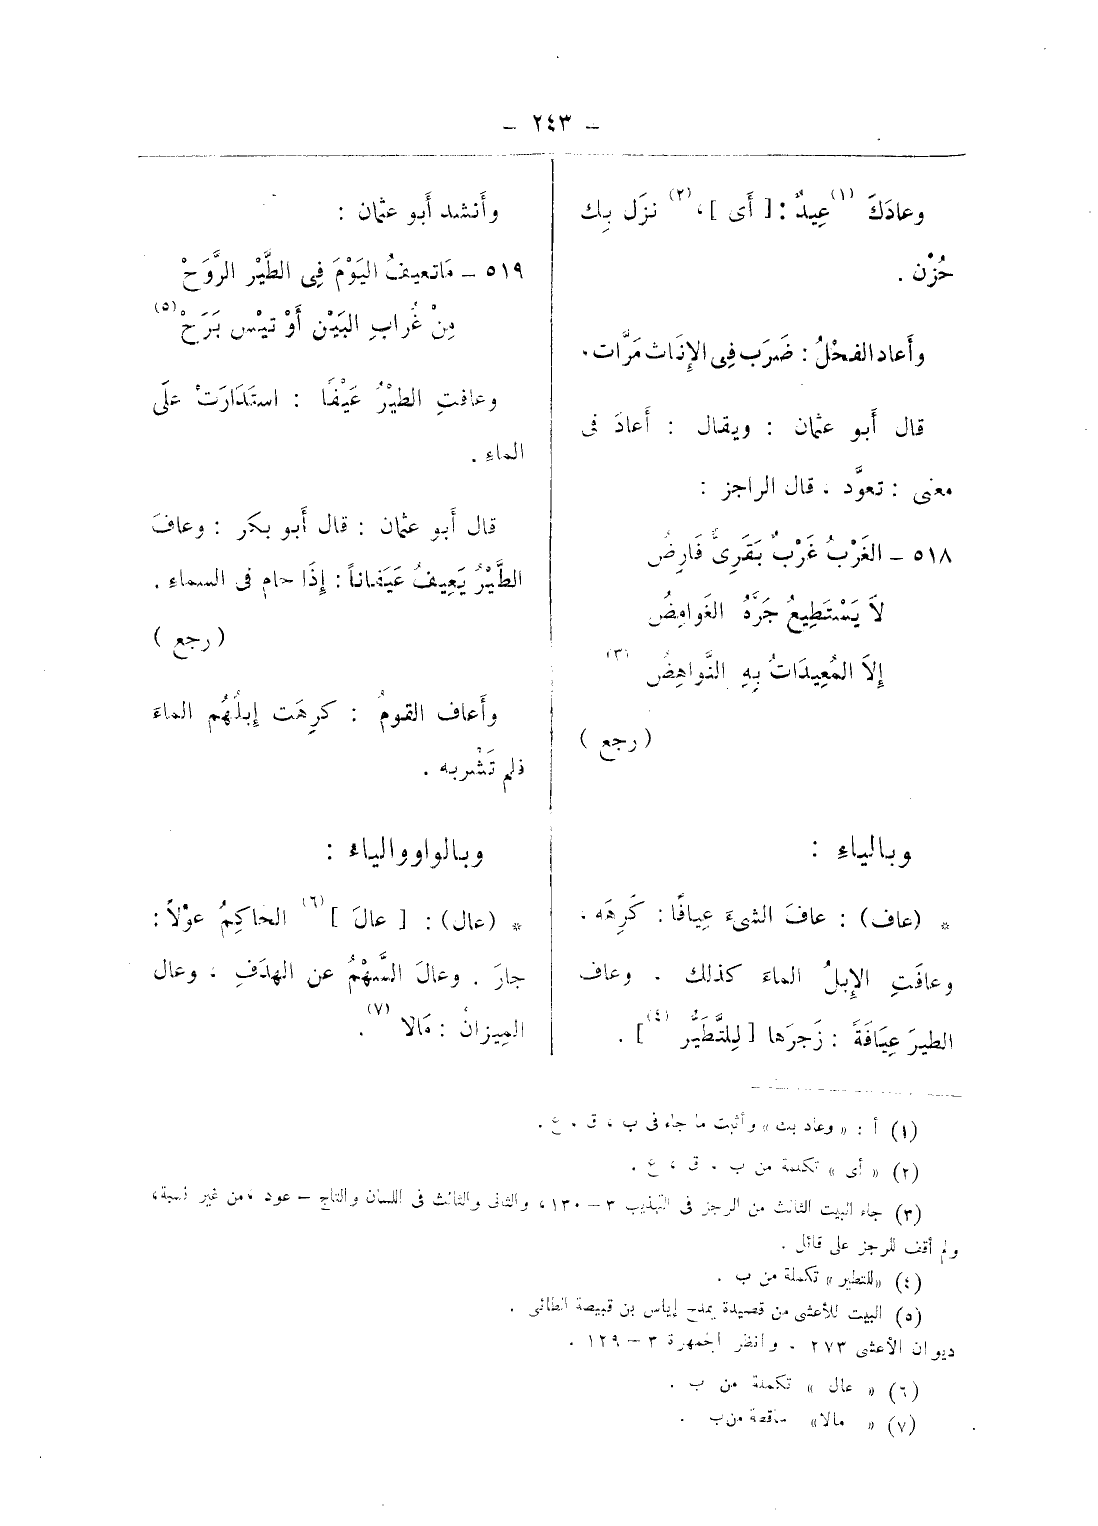 – ٢٤٣ –
وعادَكَ (١) عِيدٌ : [ أَى ] ، (٢) نزَل بِك
حُزْن .
وأَعاد الفحْلُ : ضَرَب فِى الإِنَاث مَرَّات .
قال أَبو عثمان : ويقال : أَعادَ فى
معنى : تعوَّد ، قال الراجز :
٥١٨ – الغَرْبُ غَرْبٌ بَقَرِىٌّ فَارِضُ
لاَ يَسْتَطِيعُ جَرَّهُ الغَوامِضُ
إِلاَ المُعِيدَاتُ بِهِ النَّواهِضُ (٣)
( رجع )
وبالياءِ :
* (عاف) : عافَ الشىءَ عِيافًا : كَرِهَه .
وعافَتِ الإِبلُ الماءَ كذلك . وعاف
الطيرَ عِيَافَةً : زَجرَها [ لِلتَّطَيُّرِ (٤) ] .
وأَنشد أَبو عثمان :
٥١٩ – مَاتعيفُ اليَوْمَ فِى الطَّيْر الرَّوَحْ
مِنْ غُرابِ البَيْنِ أَوْ تيْسٍ بَرَحْ (٥)
وعافتِ الطيْرُ عَيْفًا : استَدَارَتْ علَى
الماءِ .
قال أَبو عثمان : قال أَبو بكر : وعافَ
الطَّيْرُ يَعِيفُ عَيَفاناً : إِذَا حام فى السماءِ .
( رجع )
وأَعاف القومُ : كرِهَت إِبلُهُم الماءَ
فلم تَشْربه .
وبالواو والياءِ :
* (عال) : [ عالَ ] (٦) الحَاكِمُ عوْلاً :
جارَ . وعالَ السَّهْمُ عن الهدَفِ ، وعال
المِيزانُ : مَالا (٧) .
(١) أ : « وعاد بك » وأثبت ما جاء فى ب ، ق ، ع .
(٢) « أى » تكملة من ب ، ق ، ع .
(٣) جاء البيت الثالث من الرجز فى التهذيب ٣ – ١٣٠ ، والثانى والثالث فى اللسان والتاج – عود ، من غير نسبة ،
ولم أقف للرجز على قائل .
(٤) «للتطير» تكملة من ب .
(٥) البيت للأعشى من قصيدة يمدح إياس بن قبيصة الطائى .
ديوان الأعشى ٢٧٣ . وانظر الجمهرة ٣ – ١٢٩ .
(٦) « عال » تكملة من ب .
(٧) « مالا» ساقطة من ب .